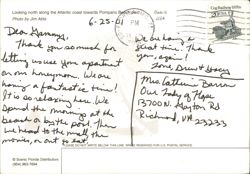 Looking north along the Atlantic coast towards Pompano Beach pier
Photo by Jim Attis
6-25-01
Dear Grammy,
Thank you so much for
letting us use your apartment
on our honeymoon. We are
having a fantastic time!
It is so relaxing here. We
spend the mornings at the
beach or by the pool. Then
we head to the mall, the
movies, or out to eat!
We are having a
great time! Thank
you, again!
Love, Drew & Stacy
Mrs. Catherine Barron
Our Lady of Hope
13700 N. Gayton Rd
Richmond, VA
23233
PLEASE DO NOT WRITE BELOW THIS LINE. SPACE RESERVED FOR U.S. POSTAL SERVICE
© Scenic Florida Distributors
PM
USA
Cog Railway 1870s